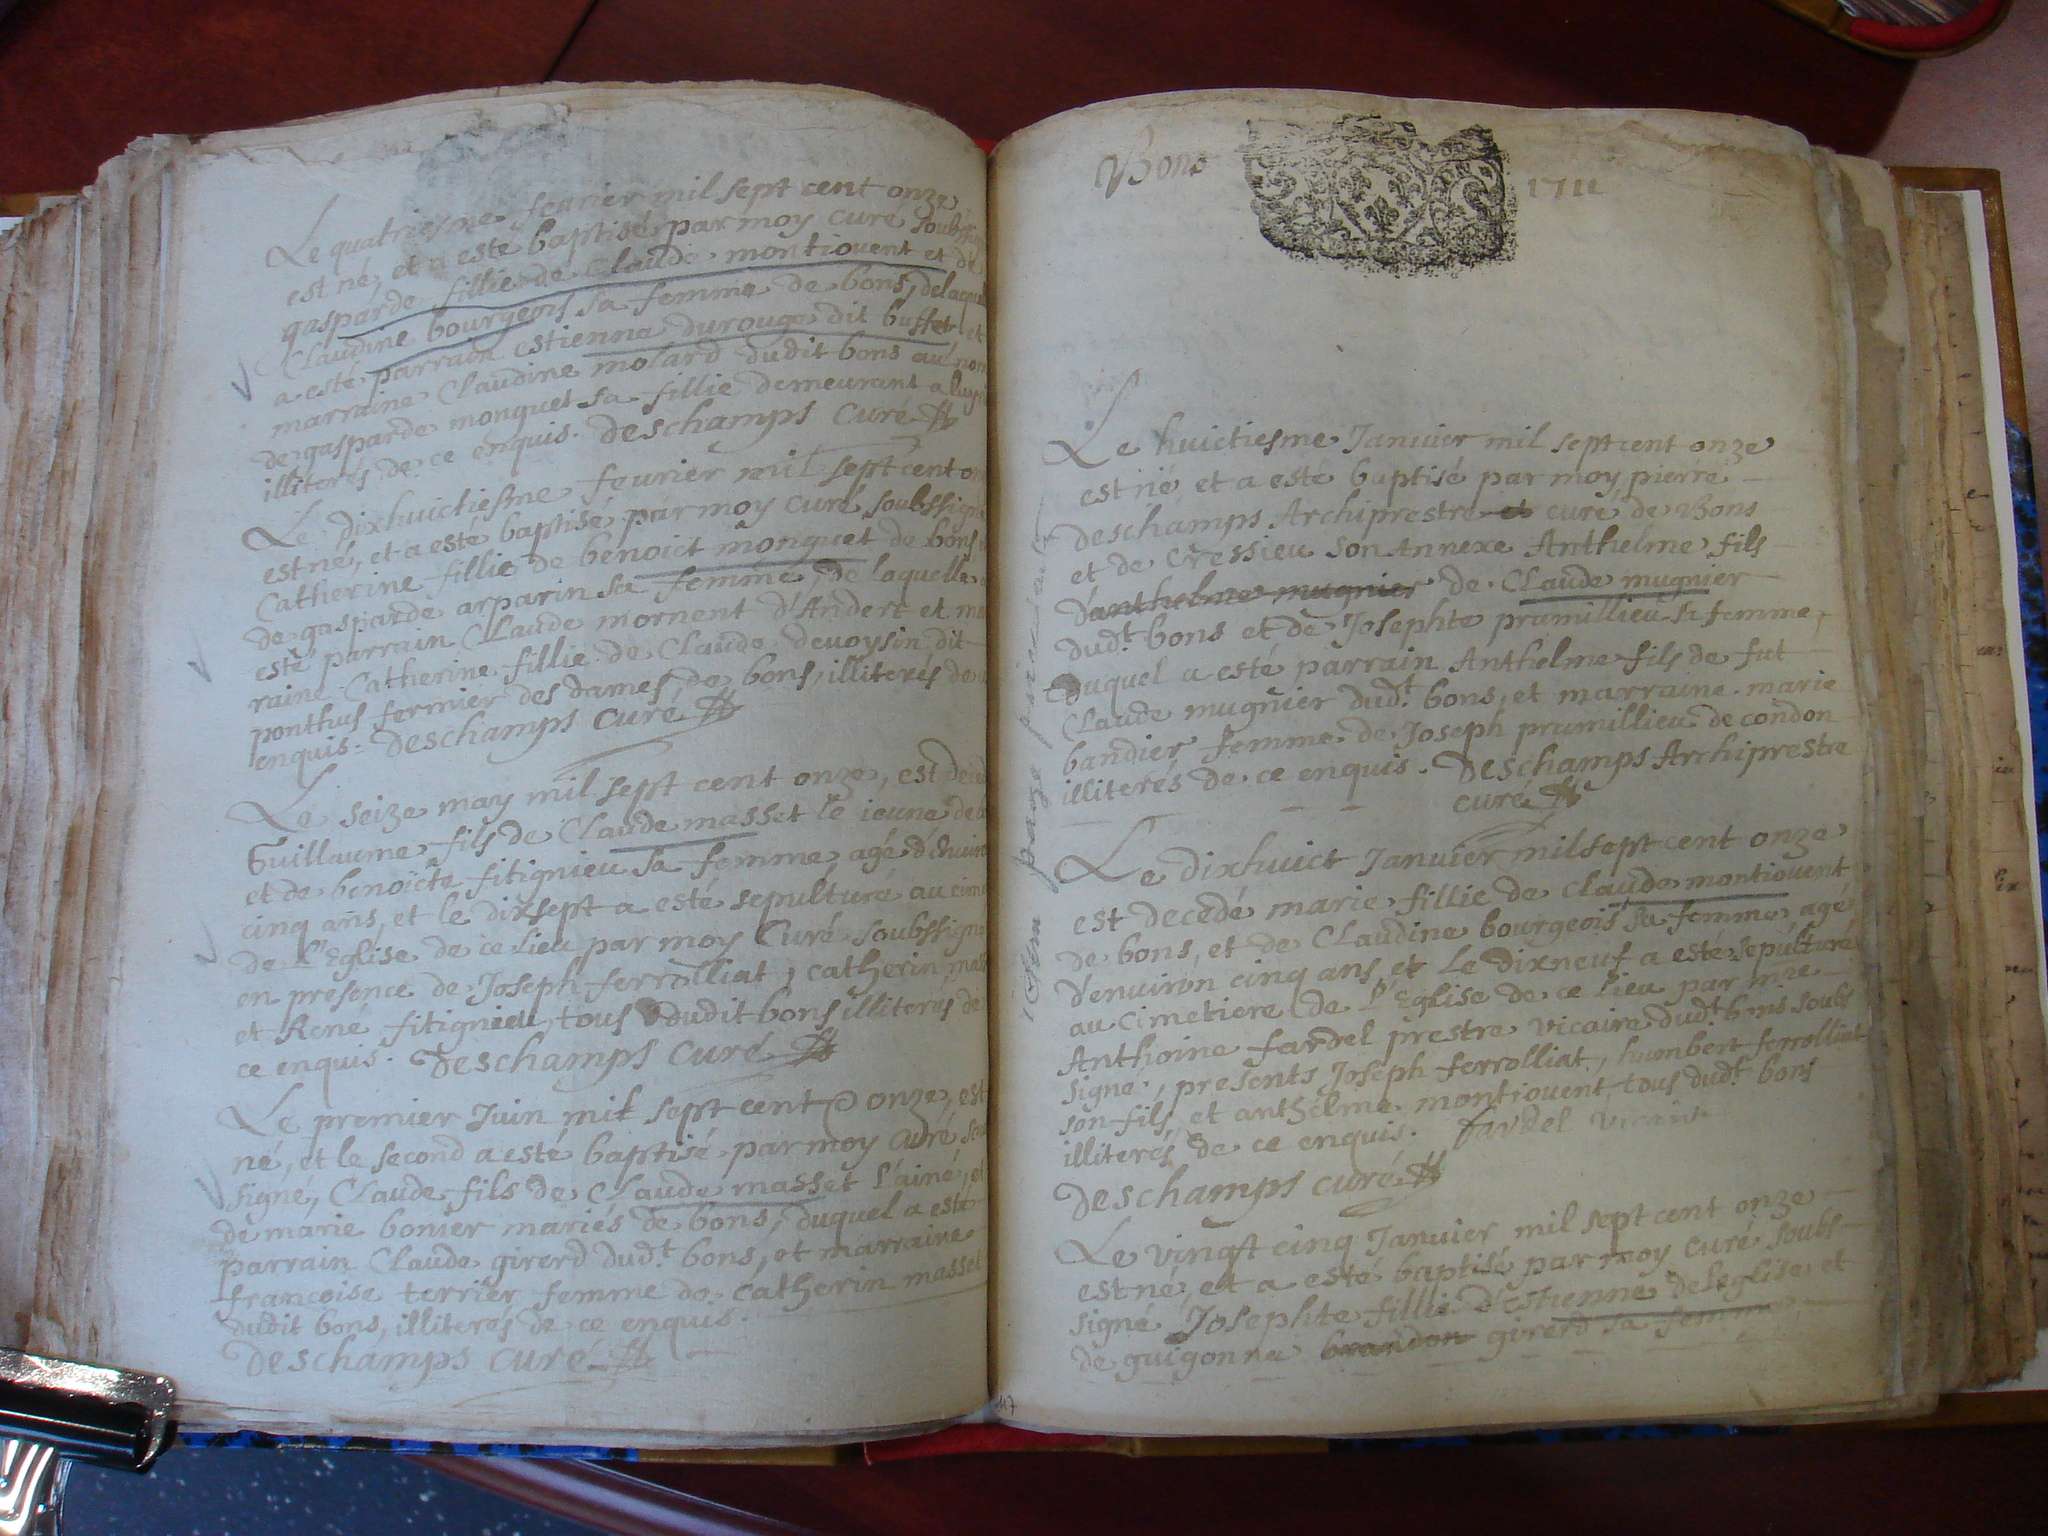 Le quatriesme feurier mil sept cent onze
est né, et a esté baptisé par moy curé
gasparde fillie de Claude montiouent et de
Claudine bourgeois sa femme de bons,
a esté parrain estienna durouge dit buffet et
marraine Claudine molard dudit bons au nom
de gasparde monquet sa fillie demeurant a
illiterés de ce enquis. Deschamps curé
Le dixhuictiesme feurier mil sept cent
est né, et a esté baptisé par moy curé
Catherine fillie de benoict monquet de bons
de gasparde arparin sa femme, de laquelle a
esté parrain Claude mornent d'Andert et
raine Catherine fillie de Claude devoysin dit
ponthus fermier des dames de bons, illiterés de
enquis. Deschamps curé
Le seize may mil sept cent onze, est
Guillaume fils de Claude masset le ieune de
et de benoicte fitignieu sa femme, agé
cinq ans, et le dixsept a esté sepulturé au
de l'Eglise de ce lieu par moy Curé
en presence de Joseph ferrolliat, catherin
et René fitignieu, tous dudit bons illiterés de
ce enquis. Deschamps curé
Le premier Juin mil sept cent onze, est
né, et le second a esté baptisé par moy curé
signé, Claude fils de Claude masset l'ainé, et
de marie bonier mariés de bons, duquel a esté
parrain Claude girerd dudt. bons, et marraine
francoise terrier femme de catherin masset
dudit bons, illiterés de ce enquis.
Deschamps curé
Bons
1711
page
Le huictiesme Januier mil sept cent onze
est né, et a esté baptisé par moy pierre
Deschamps Archiprestre et curé de Bons
et de Cressieu son Annexe Anthelme fils
d'anthelme mugnier de Claude mugnier
dudt. bons et de Josephte pramillieu sa femme,
duquel a esté parrain Anthelme fils de fut
Claude mugnier dudt. bons, et marraine marie
bandier femme de Joseph prumillieu de condon
illiterés de ce enquis. Deschamps Archiprestre
curé
Le dixhuict Januier mil sept cent onze
est decedé marie fillie de Claude montiouent
de bons, et de Claudine bourgeois sa femme agé
d'enuiron cinq ans, et Le dixneuf a esté sepulturé
au cimetiere de l'Eglise de ce lieu par mre
Anthoine fardel prestre vicaire dudt. bons soubs
signé, presents Joseph ferrolliat, humbert ferrolliat
son fils, et anthelme montiouent, tous dudt. bons
illiterés de ce enquis. fardel vicaire
Deschamps curé
Le vingt cinq Januier mil sept cent onze
est né, et a esté baptisé par moy curé soubs
signé Josephte fillie d'Estienne de leglise, et
de guigonna brandon girerd sa femme
117